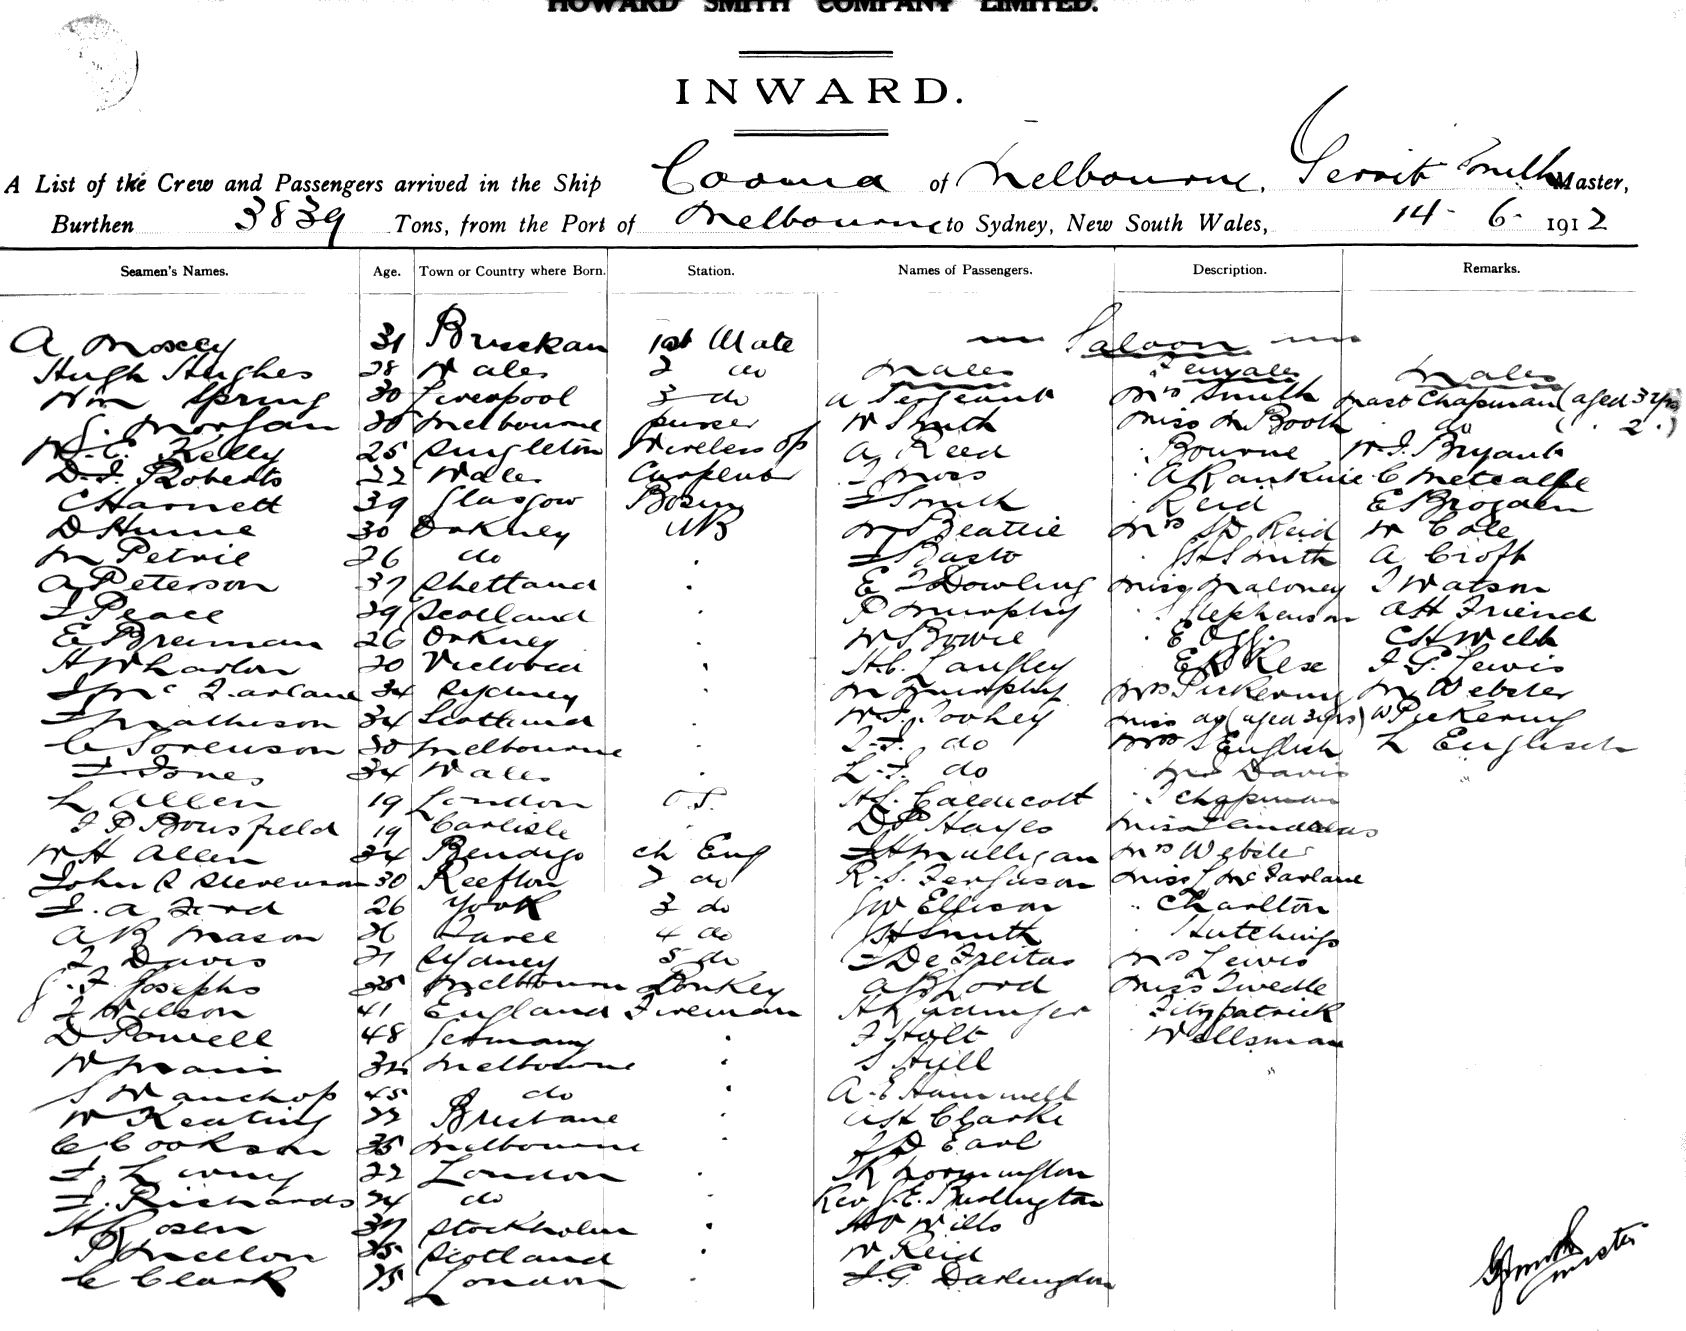 HOWARD SMITH COMPANY LIMITED.
INWARD.
A List of the Crew and Passengers arrived in the Ship Cooma of Melbourne, Gerrit Smith Master,
Burthen 3839 Tons, from the Port of Melbourne to Sydney, New South Wales, 14 - 6 - 1912
Seamen's Names. Age. Town or Country where Born. Station. Names of Passengers. Description. Remarks.
Saloon
A Moxey 31 1st Mate
Hugh Hughes 28 Wales 2 do Males Females Males
Wm Spring 30 Liverpool 3 do A Sergeant Mrs Smith Mast Chapman (aged 3 yrs)
J. Morgan 36 Melbourne purser W Smith Miss M Booth do ( " 2 " )
W.C. Kelly 25 Singleton Wireless Op A Reed " Bourne W.J. Bryant
D.J. Roberts 22 Wales Carpenter J Moss " A Rankine C Metcalfe
C Harnett 39 Glasgow Bosun J Smith " Reid E Brogden
D Hume 30 Orkney AB W Beattie Mrs D Reid W Cole
M Petrie 26 do " J Basto " H Smith A Croft
A Peterson 37 Shetland " E J Dowling Miss Maloney J Watson
J Peace 39 Scotland " P Murphy " Stephenson A H Friend
E Breiman 26 Orkney " W Bowie " E C H Webb
H Wharton 20 Victoria " H.C. Langley " J G. Lewis
J McFarlane 34 Sydney " M Murphy Mrs Pickering M Webster
J Matheson 34 Scotland " W.J. Toohey Miss do (aged 3 yrs) W Pickering
C Sorenson 30 Melbourne " J.J. do Mrs S English L English
J Jones 34 Wales " L.J. do " Davis
L Allen 19 London O.S. H.L. Caldecott " J Chapman
J P Bousfield 19 Carlisle D P Hayes Miss
W H Allen 34 Bendigo ch Eng J H Mulligan Mrs Webster
John R Stevenson 30 Reefton 2 do R.S. Ferguson Miss J McFarlane
J. A Ford 26 York 3 do J W Ellison " Charlton
A B Mason 26 Taree 4 do J H Smith " Hutchings
J Davis 21 Sydney 5 do J De Freitas Mrs Lewis
G. J Josephs 35 Melbourne Donkey A B Lord Miss Tweedle
J Wilson 41 England Fireman " Fitzpatrick
D Powell 48 Germany " J Holt " Wellsman
W Main Melbourne " S Hill
S Wauchop 45 do " A.E Hammell
W Keating 22 Brisbane " A H Clarke
C Cookson 35 Melbourne " J D Earl
J. Lowry 22 London " J R Normington
J. Richards 24 do " Rev J.E. Budlington
H Rosen 39 Stockholm " H V Wills
P Mellon 35 Scotland " W Reid
C Clark 25 London " J.G. Darlington
G Smith
Master